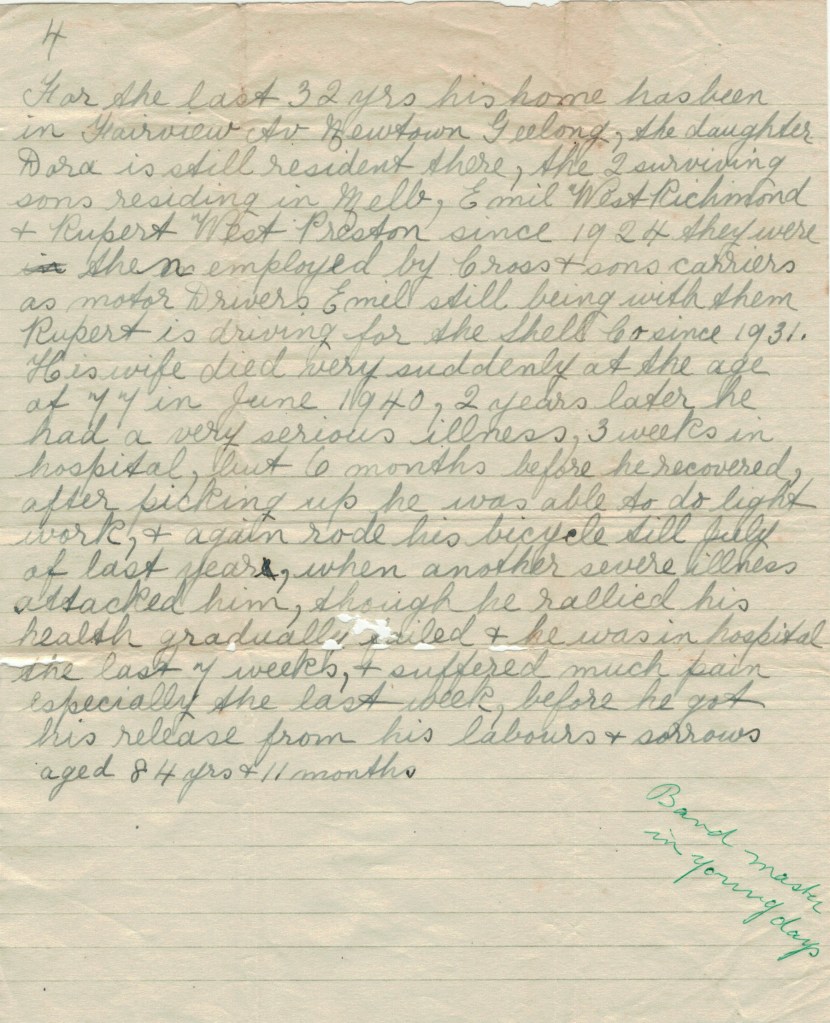 4
For the last 32 yrs his home has been
in Fairview Av Newtown Geelong, the daughter
Dora is still resident there, the 2 surviving
sons residing in Melb, Emil West Richmond
+ Rupert West Preston since 1924 they were
in then employed by Cross + sons carriers
as motor Drivers Emil still being with them
Rupert is driving for the Shell Co since 1931.
His wife died very suddenly at the age
of 77 in June 1940, 2 years later he
had a very serious illness, 3 weeks in
hospital, but 6 months before he recovered,
after picking up he was able to do light
work, + again rode his bicycle till July
of last year, when another severe illness
attacked him, though he rallied his
health gradually failed + he was in hospital
the last 7 weeks, + suffered much pain
especially the last week, before he got
his release from his labours + sorrows
aged 84 yrs + 11 months
Band master
in young days